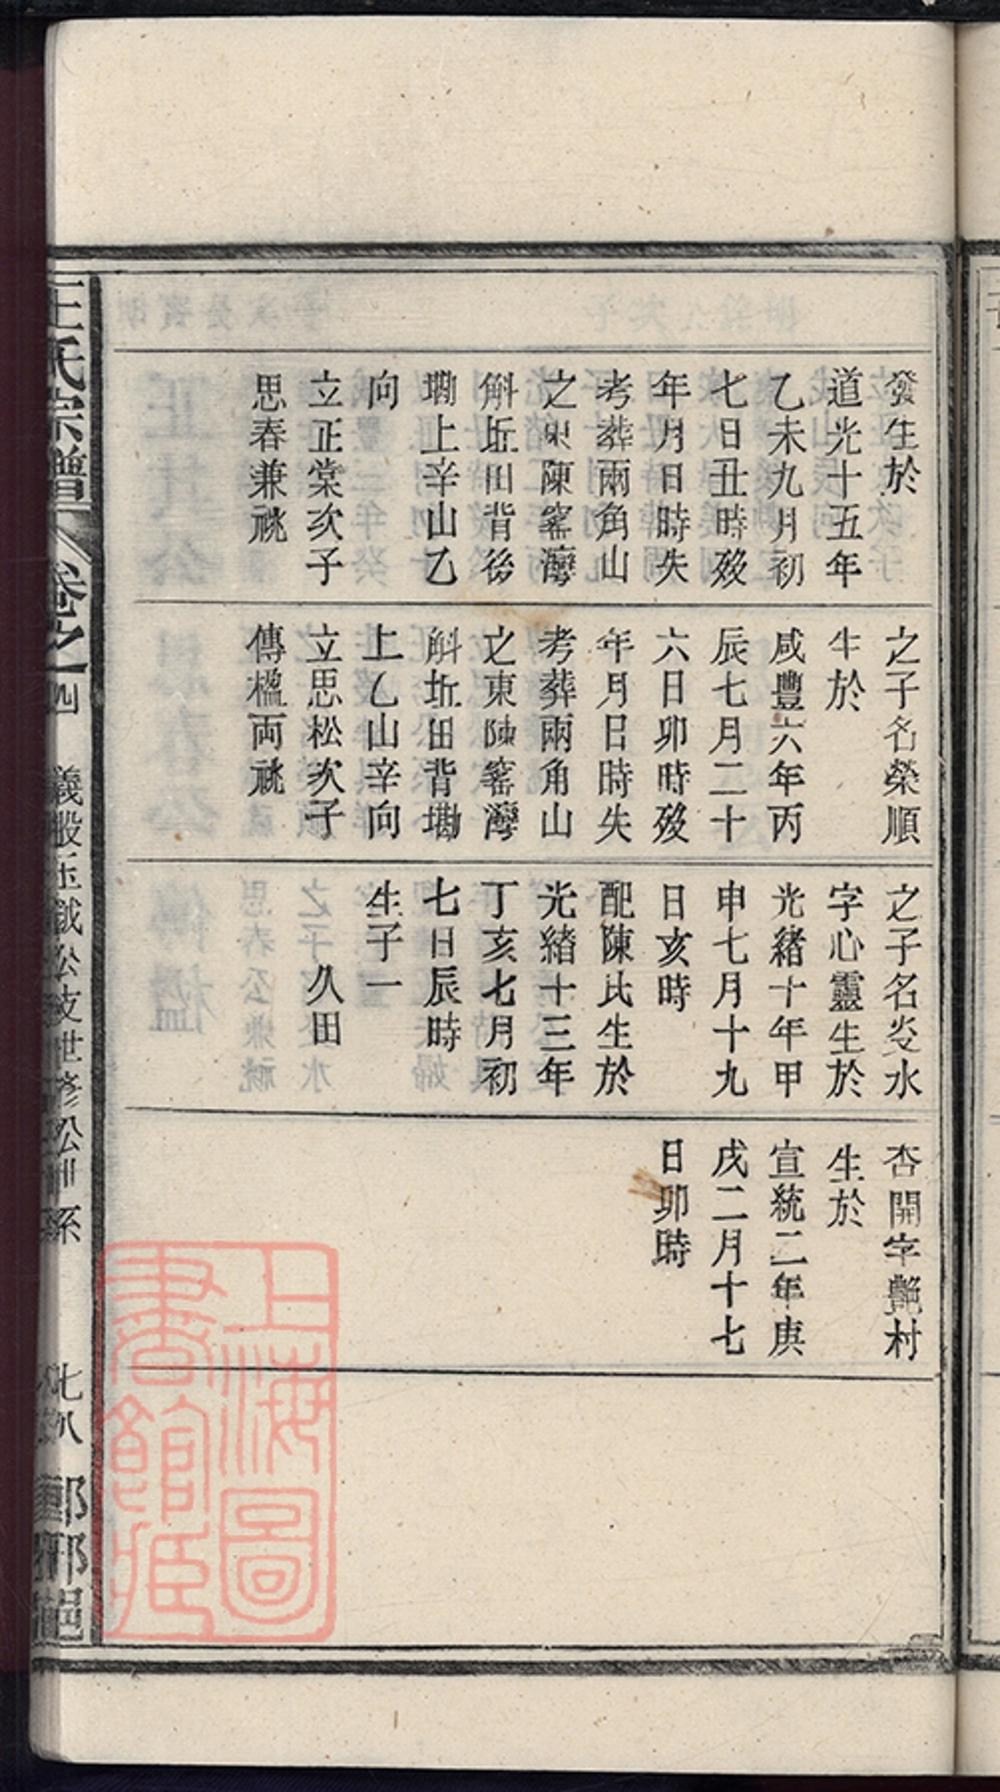 發生於
道光十五年
乙未九月初
七日丑時殁
年月日時失
考葬兩角山
之東陳窰灣
斛坵田背後
墈上辛山乙
向
立正棠次子
思春兼祧
之子名榮順
生於
咸豐六年丙
辰七月二十
六日卯時殁
年月日時失
考葬兩角山
之東陳窰灣
斛坵田背墈
上乙山辛向
立思松次子
傳楹両祧
之子名炎水
字心靈生於
光緒十年甲
申七月十九
日亥時
配陳氏生於
光緒十三年
丁亥七月初
七日辰時
生子一
久田
杏開字艷村
生於
宣統二年庚
戌二月十七
日卯時
王氏宗譜
卷之四
義股玉鉞公支世修公訓系
七八
上海圖書館藏